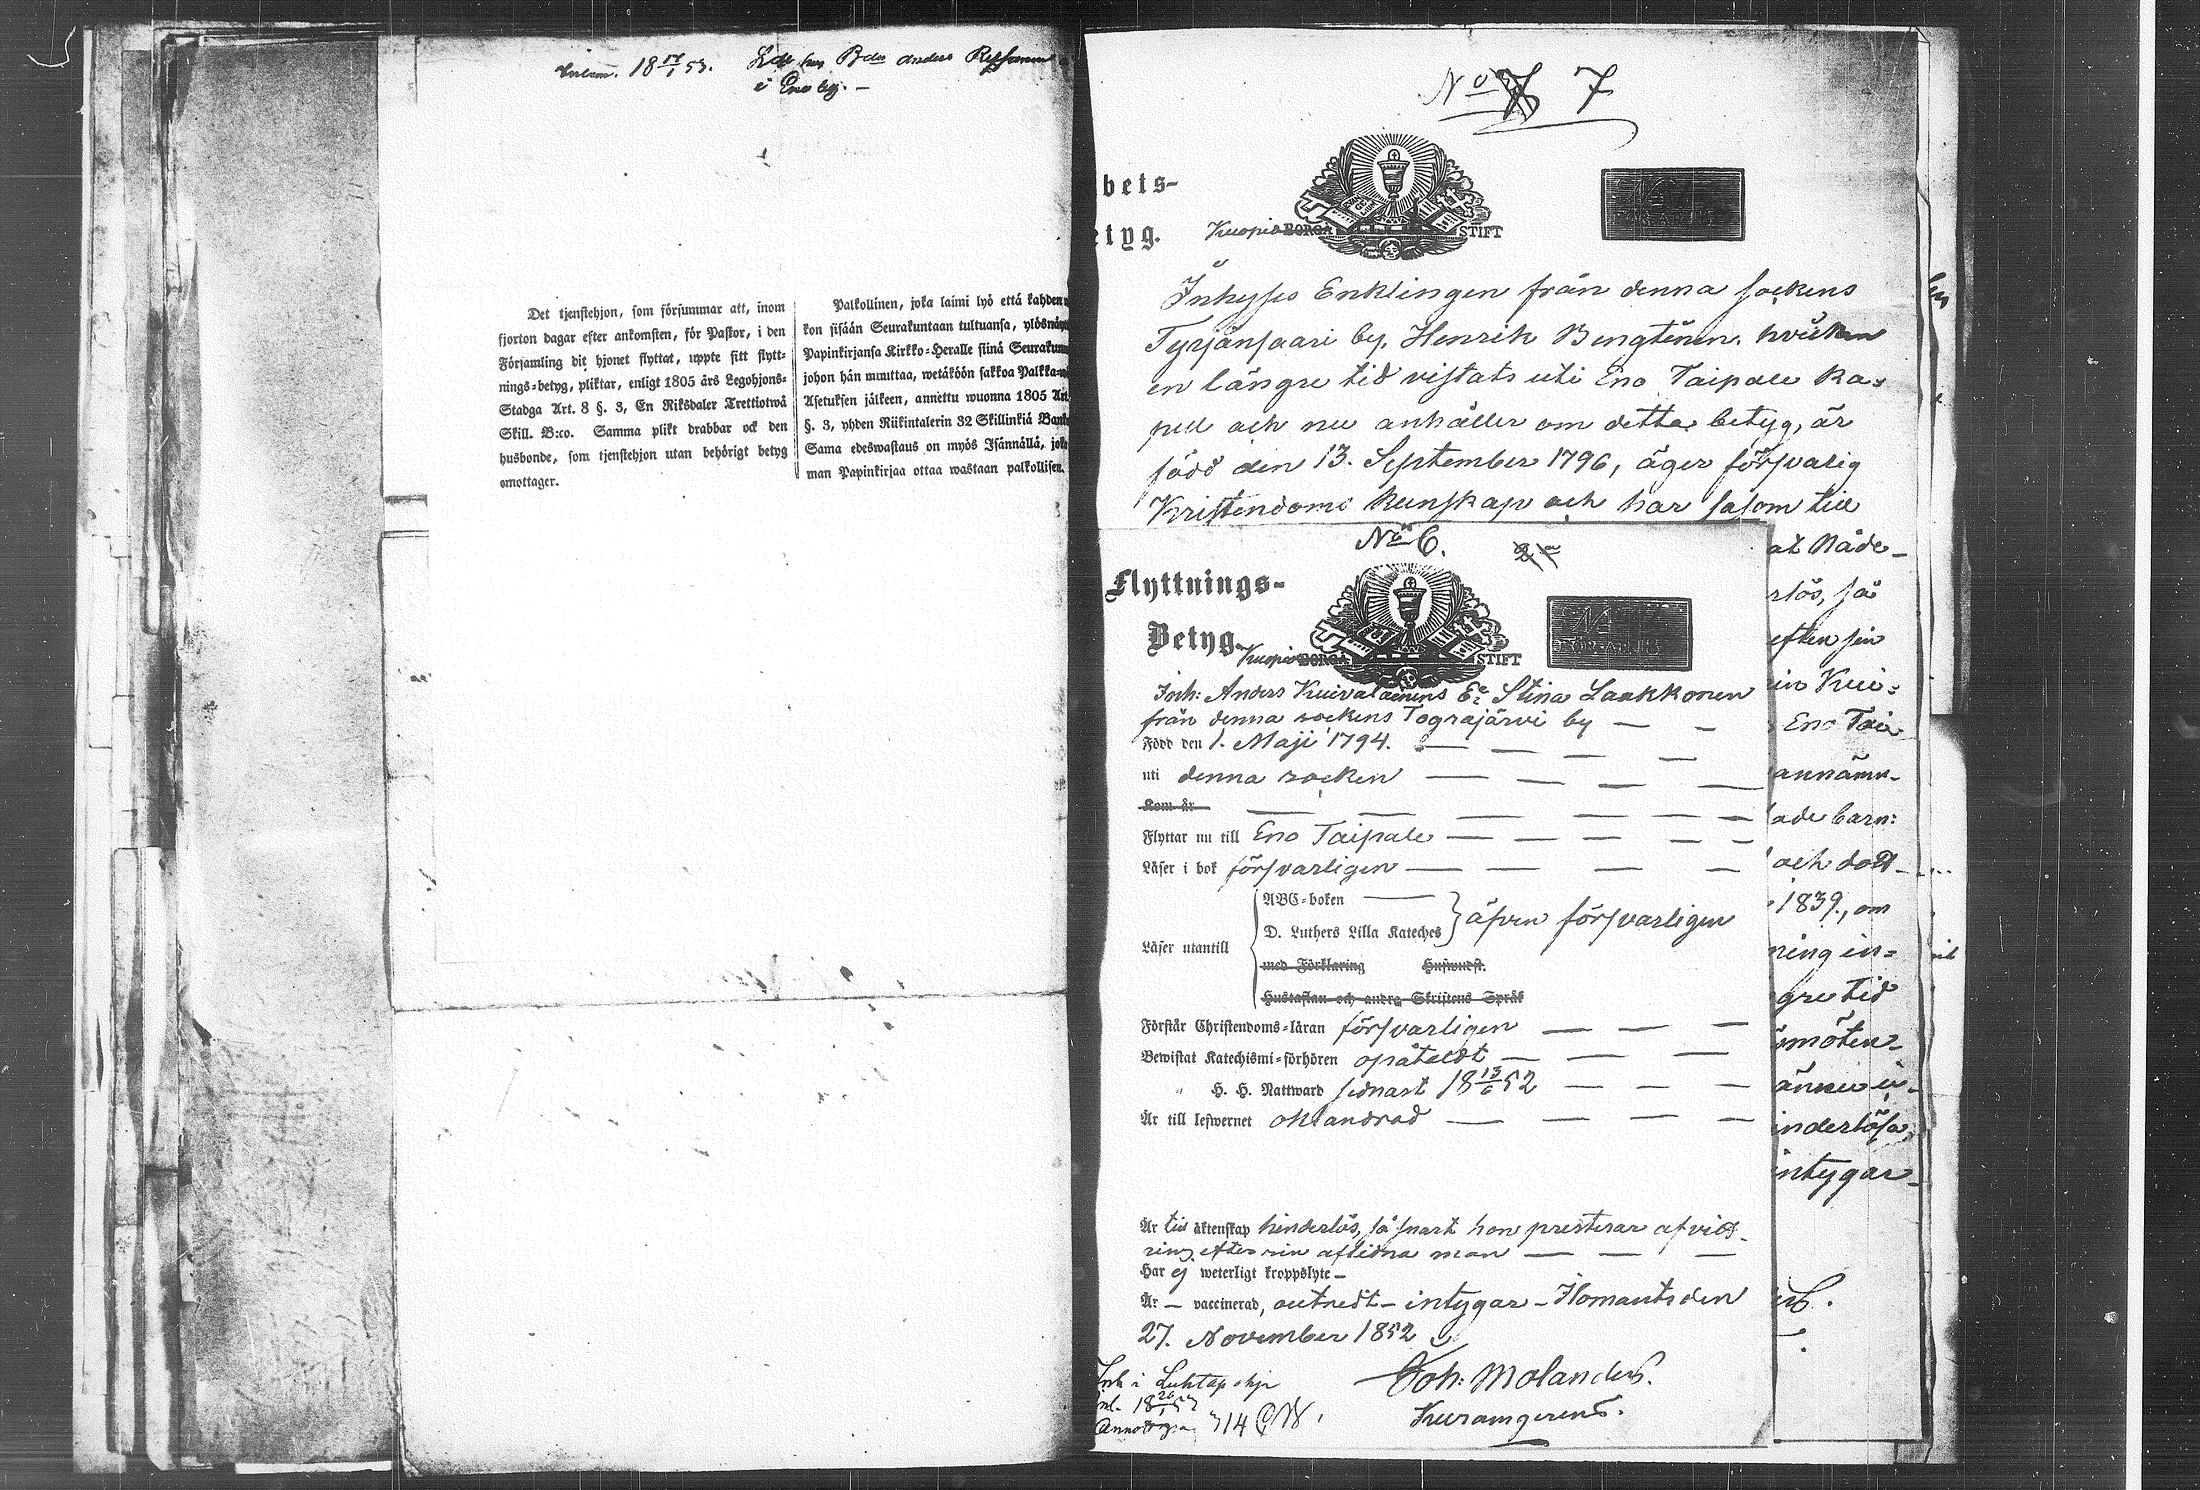 Inlem. 18 17/1 53.
i Eno by. –
Det tjenstehjon, som försummar att, inom
fjorton dagar efter ankomsten, för Pastor, i den
Församling dit hjonet flyttat, uppte sitt flytt-
nings-betyg, pliktar, enligt 1805 års Legohjons-
Stadga Art. 8 §. 3, En Riksdaler Trettiotwå
Skill. B:co. Samma plikt drabbar ock den
husbonde, som tjenstehjon utan behörigt betyg
emottager.
Palkollinen, joka laimi lyö että kahden
kon sisään Seurakuntaan tultuansa, ylösnäy
Papinkirjansa Kirkko-Heralle siinä Seurakun
johon hän muuttaa, wetäköön sakkoa Palkka-
Asetuksen jälkeen, annettu wuonna 1805 Art.
§. 3, yhden Riikintalerin 32 Skillinkiä Banko
Sama edeswastaus on myös Isännällä, joka
man Papinkirjaa ottaa wastaan palkollisen.
No 7
bets-
etyg.
Kuopio BORGÅ STIFT
Inhyses Enklingen från denna sockens
Tyrjänsaari by, Henrik Bengtinen, hvilken
en längre tid vistats uti Eno Taipale Ka-
pell och nu anhåller om detta betyg, är
född den 13. September 1796, äger försvarlig
Kristendoms kunskap och har såsom till
at Nåde-
rlös, så
efter sin
in Kui-
Eno Tai
annämn-
ade barn:
och död-
1839., om
ning in-
gre tid
smöten
ännu in-
inderlösa,
intygar
No 6.
Flyttnings-
Betyg.
Kuopio BORGÅ STIFT
Inh: Anders Kuivalainens Ea Stina Laakkonen
från denna sockens Tograjärvi by
Född den 1. Maji 1794.
uti denna socken
Kom år
Flyttar nu till Eno Taipale
Läser i bok försvarligen
ABC-boken
Läser utantill D. Luthers Lilla Kateches äfven försvarligen
med Förklaring Huswudst.
Hustaflan och andra Skriftens Språk
Förstår Christendoms-läran försvarligen
Bewistat Katechismi-förhören opåtaldt
" H. H. Nattward sednast 18 13/6 52
Är till lefwernet oklandrad
Är till äktenskap hinderlös, så snart hon presterar afvitt-
ring efter sin aflidna man
Har ej weterligt kroppslyte –
Är – vaccinerad, outredt – intygar – Ilomants den
27. November 1852
Joh: Molander.
Kuramgerens.
314